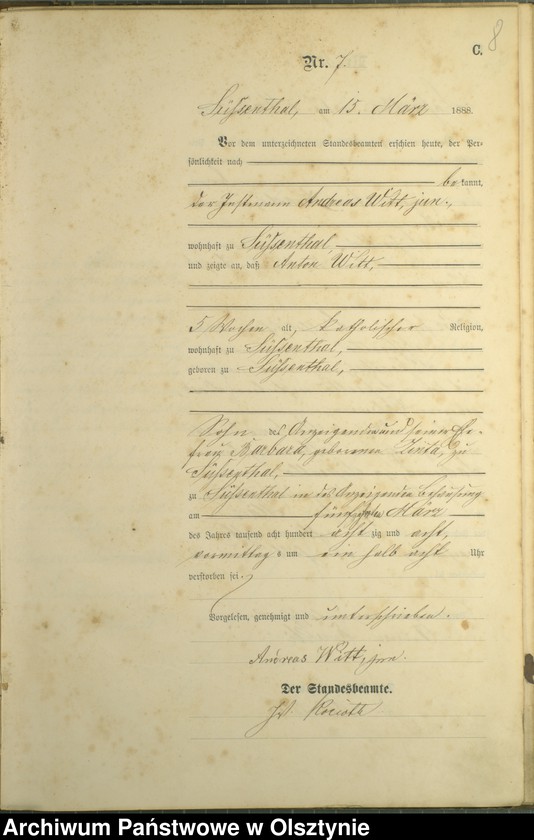 8
C.
Nr. 7.
Süssenthal, am 15. März 1888.
Vor dem unterzeichneten Standesbeamten erschien heute, der Per-
sönlichkeit nach
be kannt,
der Instmann Andreas Witt, jun.,
wohnhaft zu Süssenthal,
und zeigte an, daß Anton Witt,
5 Wochen alt, katholischer Religion,
wohnhaft zu Süssenthal,
geboren zu Süssenthal,
Sohn des Anzeigenden und seiner Ehe-
frau Barbara, geborenen zu
Süssenthal,
zu Süssenthal in des Anzeigenden Behausung
am fünfzehnten März
des Jahres tausend acht hundert acht zig und acht,
vormittags um ein halb acht Uhr
verstorben sei.
Vorgelesen, genehmigt und unterschrieben.
Andreas Witt, jun.
Der Standesbeamte.
Archiwum Państwowe w Olsztynie